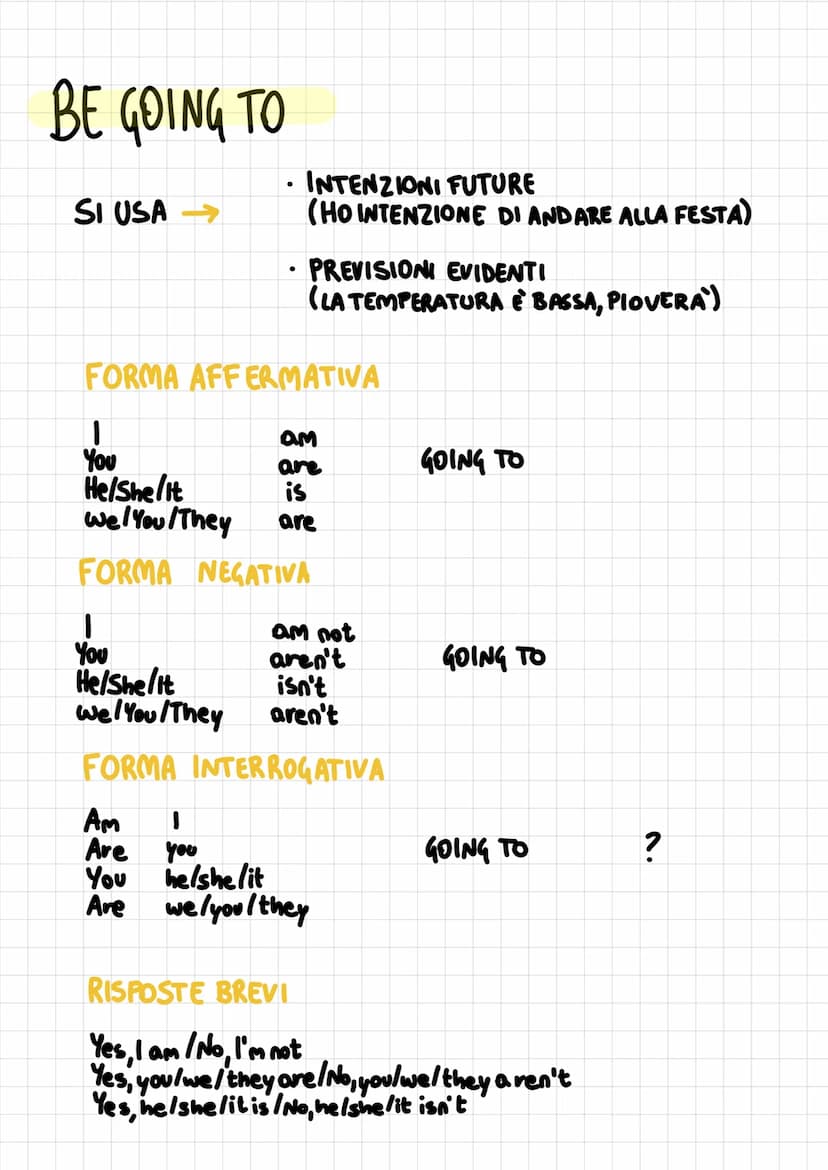 BE GOING TO
SI USA → · INTENZIONI FUTURE
(HO INTENZIONE DI ANDARE ALLA FESTA)
· PREVISIONI EVIDENTI
(LA TEMPERATURA È BASSA, PIOVERÀ)
FORMA AFFERMATIVA
I am
You are GOING TO
He/She/It is
We/You/They are
FORMA NEGATIVA
I am not
You aren't GOING TO
He/She/It isn't
We/You/They aren't
FORMA INTERROGATIVA
Am I
Are you GOING TO ?
You he/she/it
Are we/you/they
RISPOSTE BREVI
Yes, I am/No, I'm not
Yes, you/we/they are/No, you/we/they aren't
Yes, he/she/it is/No, he/she/it isn't